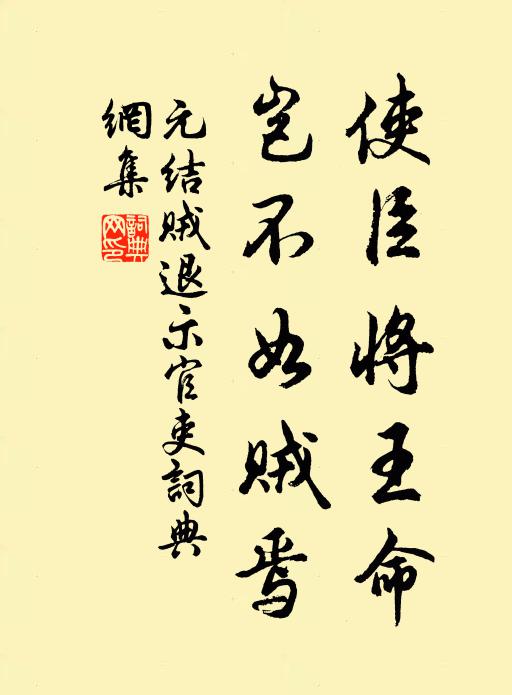 使臣將王命
豈不如賊焉
元结賊退示官吏詞典
網集
詞典網印